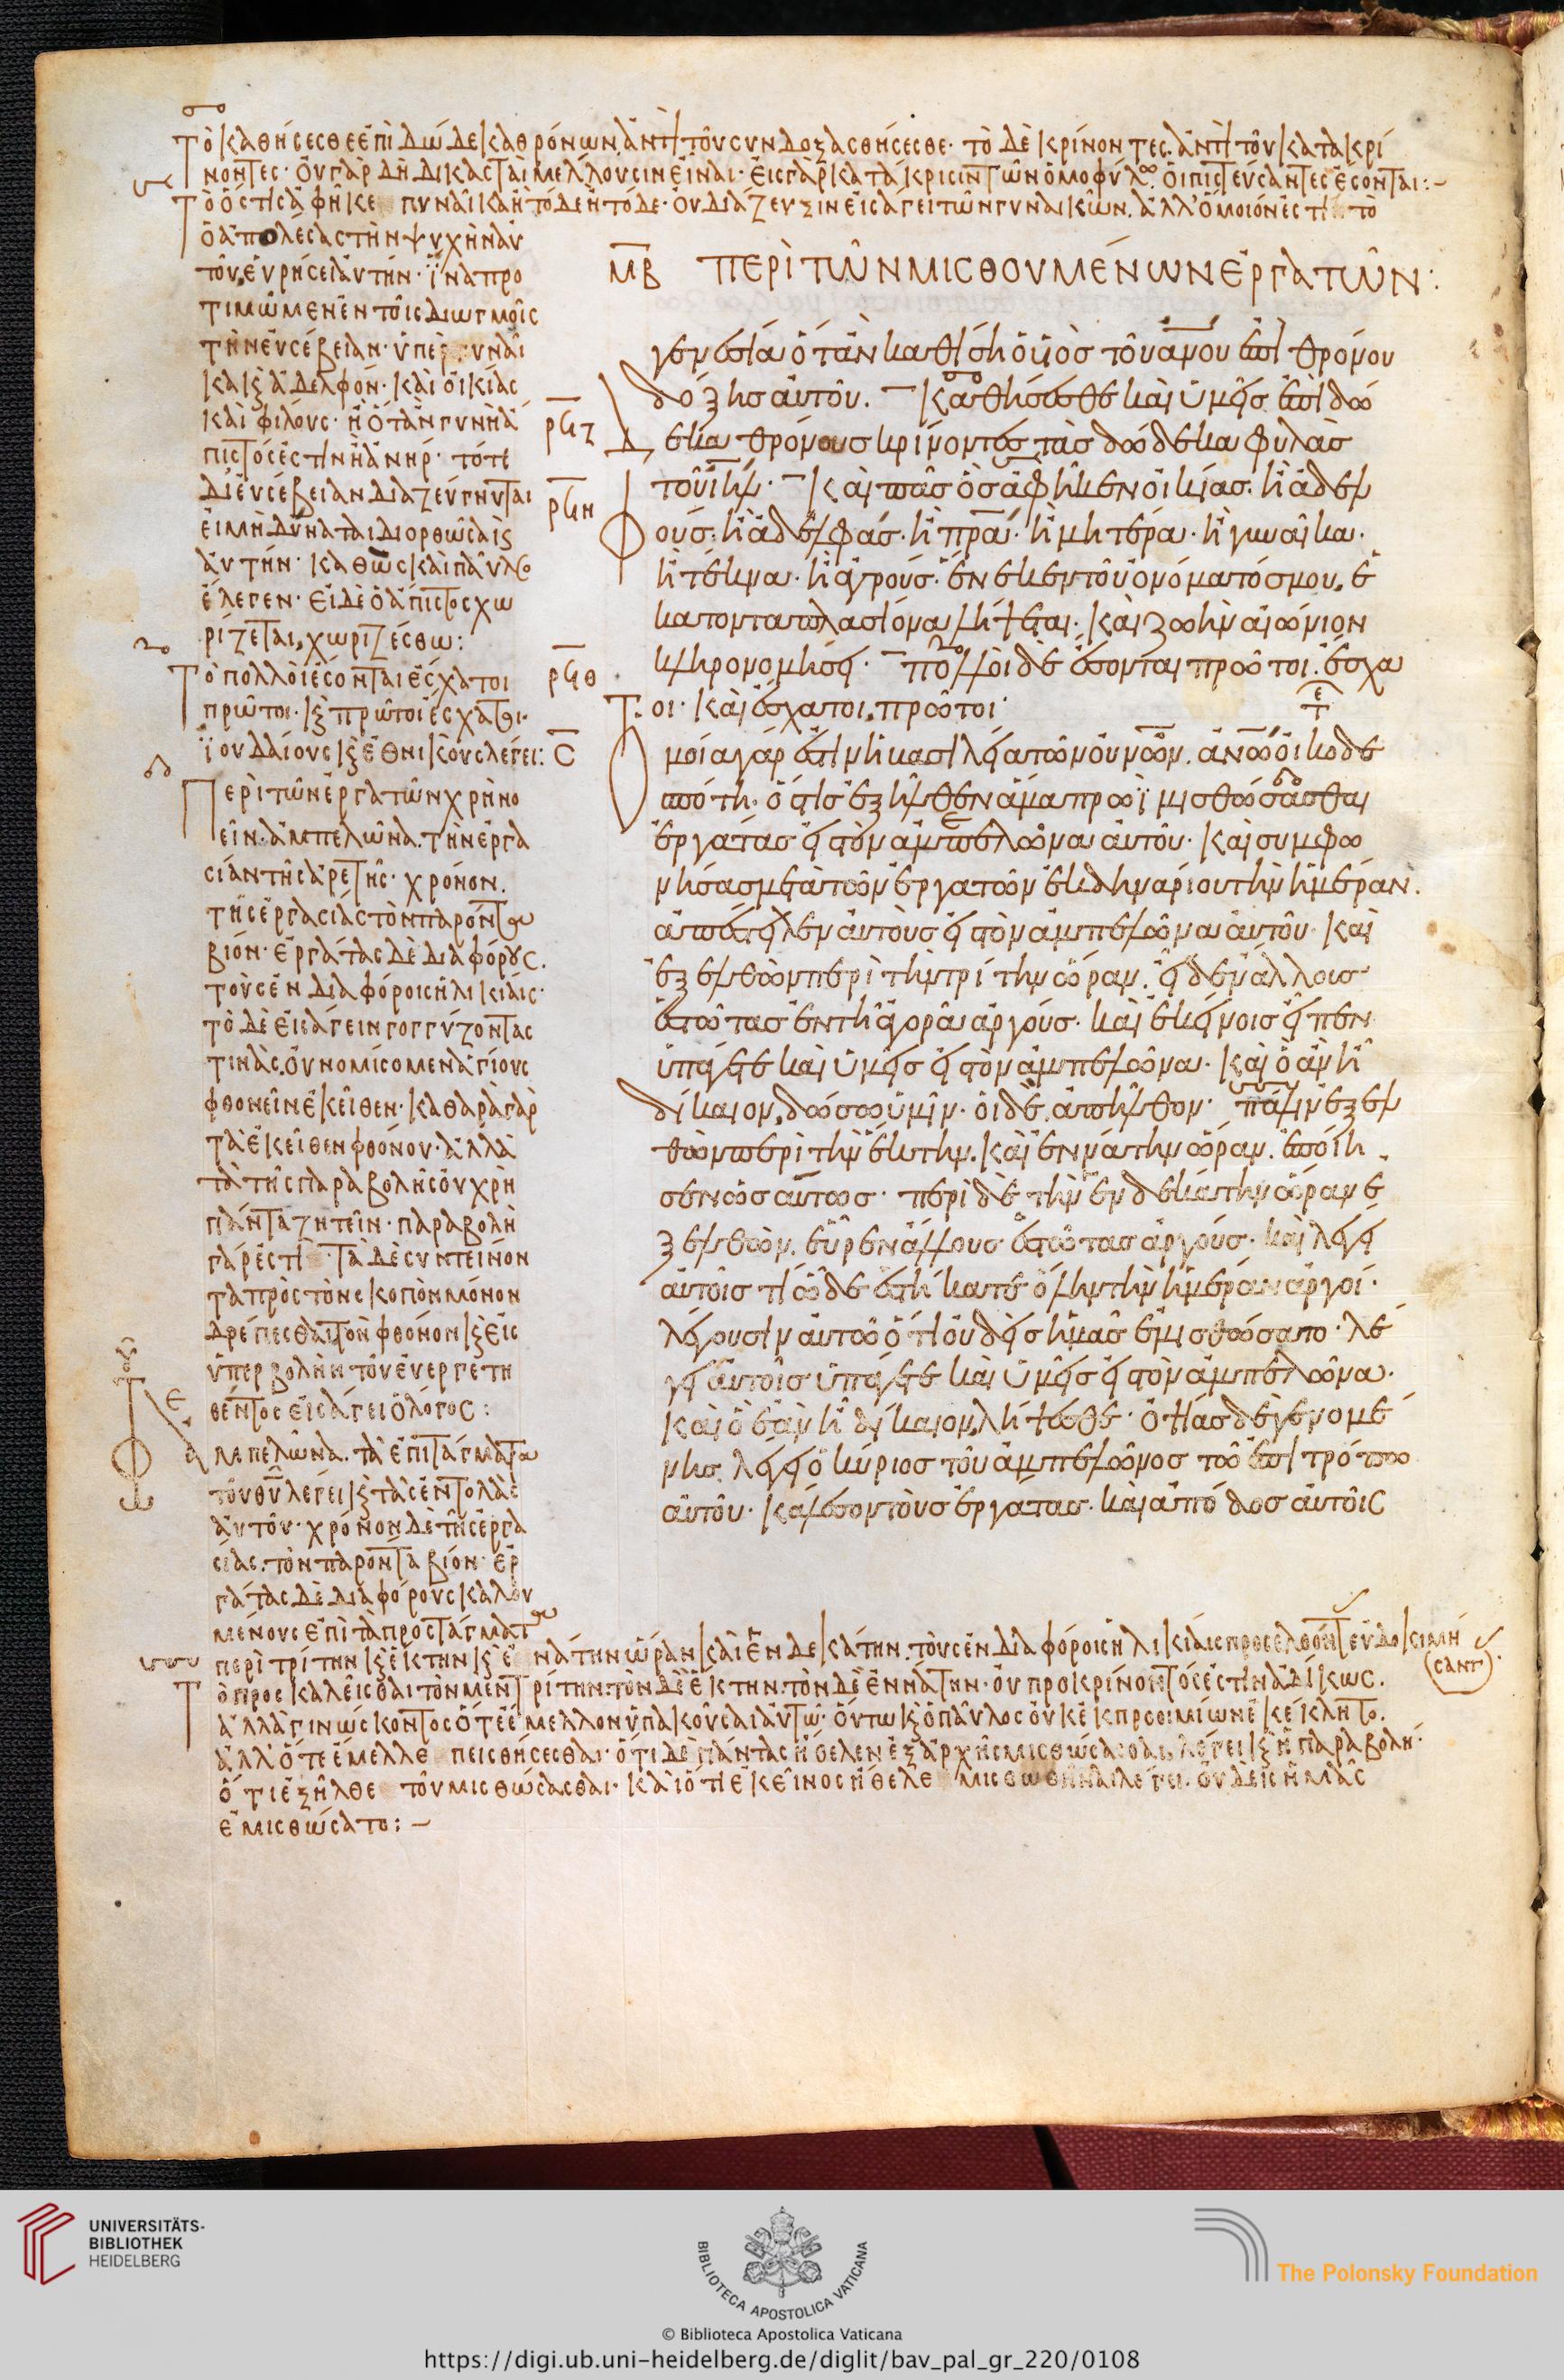 Τὸ καθήσεσθε ἐπὶ δώδεκα θρόνων, ἀντὶ τοῦ συνδοξασθήσεσθε· τὸ δὲ κρίνοντες, ἀντὶ τοῦ κατακρί
νοντες· οὐ γὰρ δὴ δικασταὶ μέλλουσιν εἶναι· εἰς γὰρ κατάκρισιν τῶν ὁμοφύλων οἱ πιστεύσαντες ἔσονται:–
Τὸ ὅστις ἀφῆκε γυναῖκα ἢ τόδε ἢ τόδε· οὐ διάζευξιν εἰσάγει τῶν γυναικῶν. ἀλλ' ὅμοιόν ἐστι τὸ
ὁ ἀπολέσας τὴν ψυχὴν αὐ
τοῦ, εὑρήσει αὐτήν· ἵνα προ
τιμῶμεν ἐν τοῖς διωγμοῖς
τὴν εὐσέβειαν· ὑπὲρ γυναῖ
κα κ ἀδελφόν· καὶ οἰκίας
καὶ φίλους· ἢ ὅταν γυνὴ ἀ
πιστός ἐστιν ἢ ἀνήρ· τότε
δι' εὐσέβειαν διαζεύγνυται
εἰ μὴ δύναται διορθῶσαι
αὐτήν· καθὼς καὶ παῦλος
ἔλεγεν· εἰ δὲ ὁ ἄπιστος χω
ρίζεται, χωριζέσθω:
Τὸ πολλοὶ ἔσονται ἔσχατοι
πρῶτοι· κ πρῶτοι ἔσχατοι·
ἰουδαίους κ ἐθνικοὺς λέγει:
Περὶ τῶν ἐργατῶν χρὴ νο
εῖν· ἀμπελῶνα. τὴν ἐργα
σίαν τῆς ἀρετῆς· χρόνον.
τῆς ἐργασίας τὸν παρόντα
βίον· ἐργάτας δὲ διαφόρους.
τοὺς ἐν διαφόροις ἡλικίαις·
τὸ δὲ εἰσάγειν γογγύζοντας
τινὰς. οὐ νομίσομεν ἁγίους
φθονεῖν ἐκεῖθεν· καθαρὰ γὰρ
τὰ ἐκεῖθεν φθόνου· ἀλλὰ
τὰ τῆς παραβολῆς οὐ χρὴ
πάντα ζητεῖν· παραβολὴ
γάρ ἐστι· τὰ δὲ συντείνον
τα πρὸς τὸν σκοπὸν μόνον
δρέπεσθαι
ὑπερβολὴν τοῦ εὐεργετη
θέντος εἰσάγει ὁ λόγος:
ἀμπελῶνα. τὰ ἐπιτάγματα
τοῦ θυ λέγει κ τὰς ἐντολὰς
αὐτοῦ· χρόνον δὲ τῆς ἐργα
σίας. τὸν παρόντα βίον· ἐρ
γάτας δὲ διαφόρους καλου
μένους ἐπὶ τὰ προστάγματα
περὶ τρίτην κ ἕκτην κ ἐννάτην ὥραν καὶ ἑνδεκάτην. τοὺς ἐν διαφόροις ἡλικίαις προσελθόντας εὐδοκιμή
σαντ
Τὸ προσκαλεῖσθαι τὸν μὲν τρίτην. τὸν δὲ ἕκτην. τὸν δὲ ἐννάτην· οὐ προκρίνοντός ἐστιν ἀδίκως.
ἀλλὰ γινώσκοντος ὅτε ἔμελλον ὑπακοῦσαι αὐτῷ· οὕτω κ ὁ παῦλος οὐκ ἐκ προοιμίων ἐκέκλητο.
ἀλλ' ὅτε ἔμελλε πεισθήσεσθαι· ὅτι δὲ πάντας ἤθελεν ἐξ ἀρχῆς μισθώσασθαι, λέγει κ ἡ παραβολή·
ὅτι ἐξῆλθε τοῦ μισθώσασθαι· καὶ ὅτι ἐκεῖνος ἤθελε μισθωθῆναι λέγει. οὐδεὶς ἡμᾶς
ἐμισθώσατο:–
ΜΒ ΠΕΡὶ ΤῶΝ ΜΙΣΘΟΥΜέΝΩΝ ἐΡΓΑΤῶΝ:
γενεσία ὅταν καθίση ὁ υἱὸς τοῦ ανου ἐπὶ θρόνου
δόξης αὐτοῦ. Καθήσεσθε καὶ ὑμεῖς ἐπὶ δώ
δεκα θρόνους κρίνοντες τὰς δώδεκα φυλὰς
τοῦ ιηλ· Καὶ πᾶς ὃς ἀφῆκεν οἰκίας. ἢ ἀδελ
φούς· ἢ ἀδελφάς· ἢ πρα· ἢ μητέρα· ἢ γυναῖκα·
ἢ τέκνα· ἢ ἀγρούς· ἕνεκεν τοῦ ὀνόματός μου, ἑ
κατονταπλασίονα λήψεται· καὶ ζωὴν αἰώνιον
κληρονομήσει· πολλοὶ δὲ ἔσονται πρῶτοι ἔσχα
τοι· καὶ ἔσχατοι, πρῶτοι·
Ὁμοία γάρ ἐστιν ἡ βασιλεία τῶν οὐνῶν. ἀνῶ οἰκοδε
σπότη· ὅστις ἐξῆλθεν ἅμα πρωῒ μισθώσασθαι
ἐργάτας εἰς τὸν ἀμπελῶνα αὐτοῦ· καὶ συμφω
νήσας μετὰ τῶν ἐργατῶν ἐκ δηναρίου τὴν ἡμέραν.
ἀπέστειλεν αὐτοὺς εἰς τὸν ἀμπελῶνα αὐτοῦ· καὶ
ἐξελθὼν περὶ τὴν τρίτην ὥραν. εἶδεν ἄλλους
ἑστῶτας ἐν τῆ ἀγορᾶ ἀργούς· καὶ ἐκείνοις εἶπεν
ὑπάγετε καὶ ὑμεῖς εἰς τὸν ἀμπελῶνα· καὶ ὃ ἂν ἦ
δίκαιον, δώσω ὑμῖν· οἱ δὲ ἀπῆλθον· πάλιν ἐξελ
θὼν περὶ τὴν ἕκτην. καὶ ἐννάτην ὥραν. ἐποίη
σεν ὡσαύτως· περὶ δὲ τὴν ἑνδεκάτην ὥραν ἐ
ξελθὼν. εὗρεν ἄλλους ἑστῶτας ἀργούς· καὶ λέγει
αὐτοῖς τί ὧδε ἑστήκατε ὅλην τὴν ἡμέραν ἀργοί·
λέγουσιν αὐτῶ ὅτι οὐδεὶς ἡμᾶς ἐμισθώσατο· λέ
γει αὐτοῖς ὑπάγετε καὶ ὑμεῖς εἰς τὸν ἀμπελῶνα·
καὶ ὃ ἐὰν ἦ δίκαιον, λήψεσθε· ὀψίας δὲ γενομέ
νης λέγει ὁ κύριος τοῦ ἀμπελῶνος τῶ ἐπιτρόπω
αὐτοῦ· κάλεσον τοὺς ἐργάτας· καὶ ἀπόδος αὐτοῖς
UNIVERSITÄTS-
BIBLIOTHEK
HEIDELBERG
BIBLIOTECA APOSTOLICA VATICANA
The Polonsky Foundation
© Biblioteca Apostolica Vaticana
https://digi.ub.uni-heidelberg.de/diglit/bav_pal_gr_220/0108